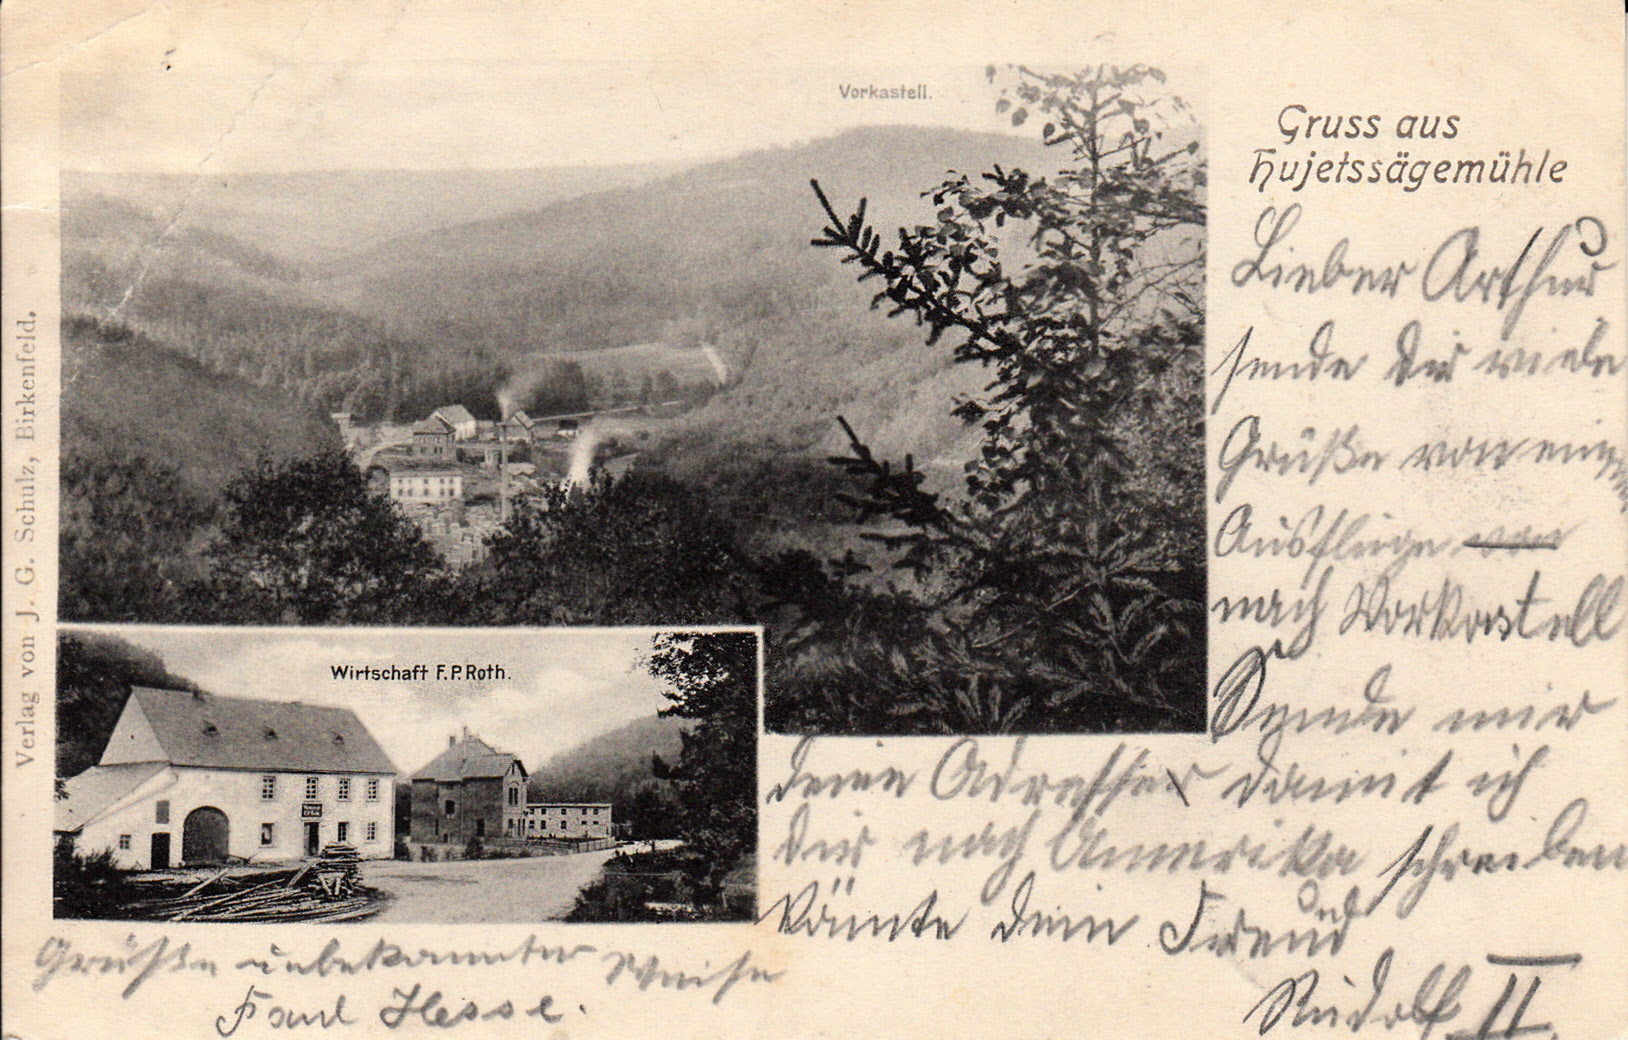 Vorkastell.
Gruss aus
Hujetssägemühle
Lieber Arthur
sende dir viele
Grüße von einem
Ausfluge von
nach Vorkastell
Sende mir
deine Adresse damit ich
dir nach Amerika schreiben
könnte dein Freund
Rudolf II
Wirtschaft F. P. Roth.
Grüße unbekannter Weise
Paul Hesse.
Verlag von J. G. Schulz, Birkenfeld.